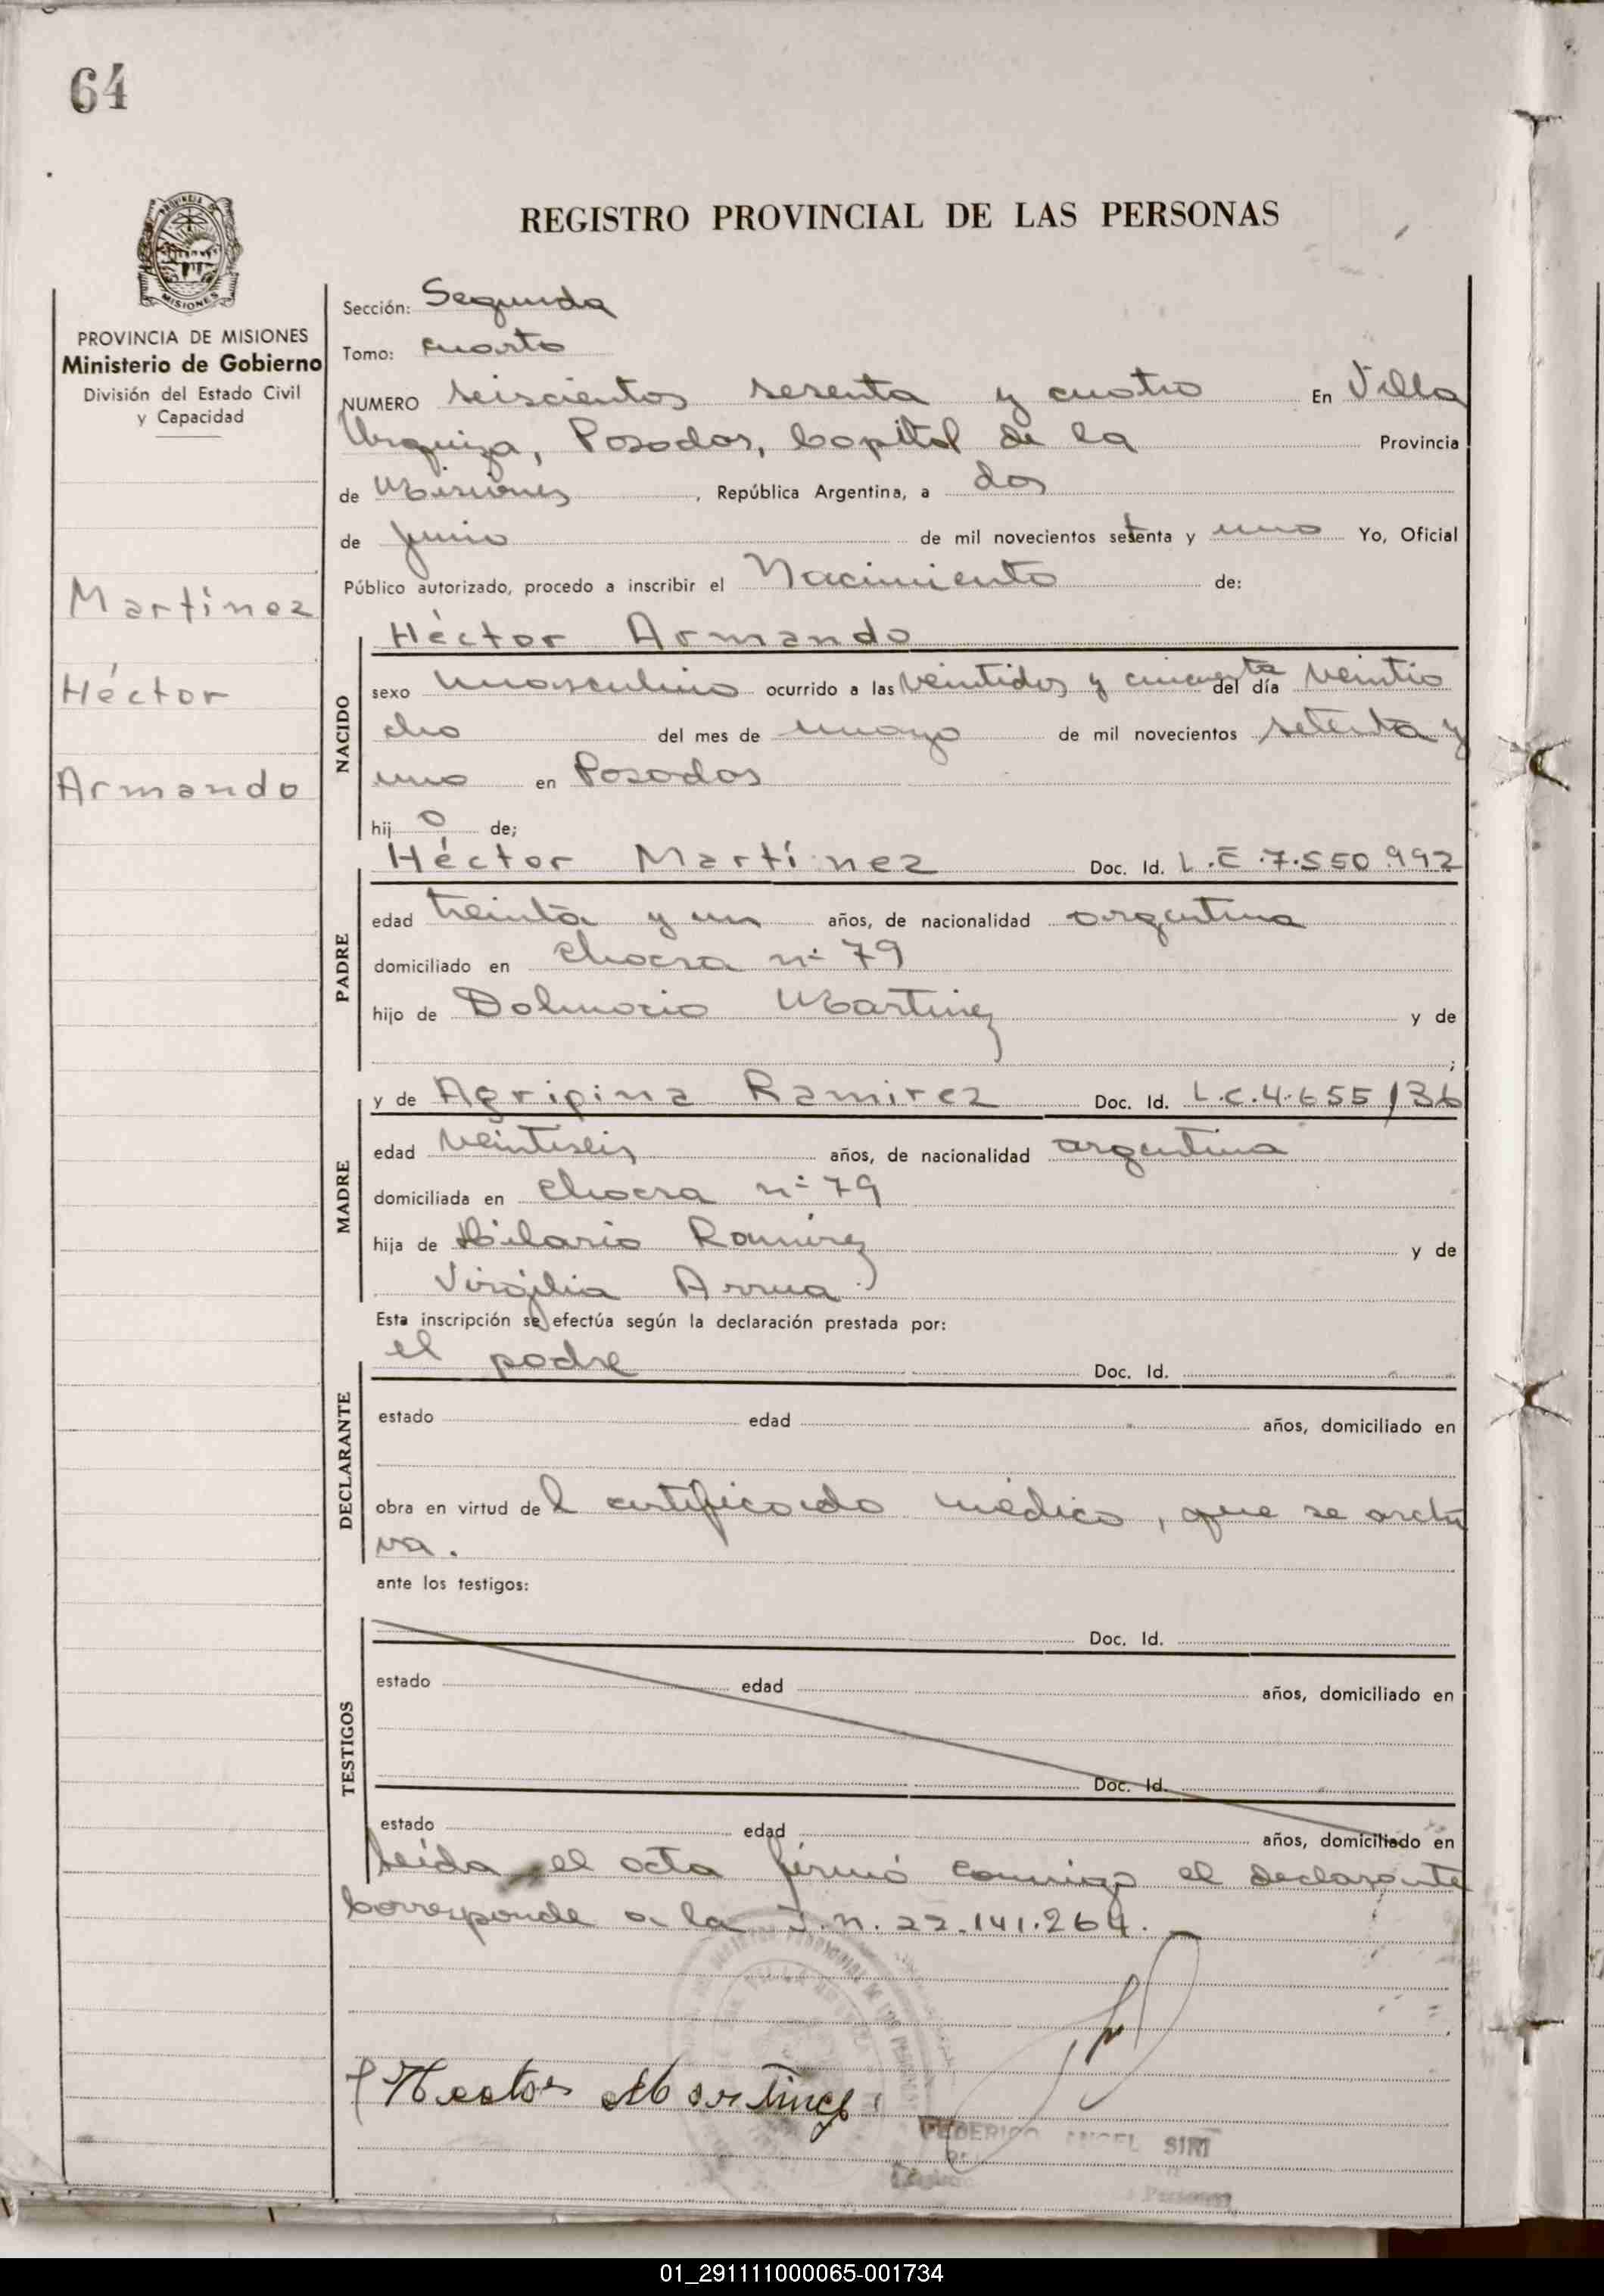 64
REGISTRO PROVINCIAL DE LAS PERSONAS
MISIONES
PROVINCIA DE MISIONES
Ministerio de Gobierno
División del Estado Civil
y Capacidad
Martínez
Héctor
Armando
Sección: Segunda
Tomo: cuarto
NUMERO seiscientos sesenta y cuatro En Villa
Urquiza, Posadas, Capital de la Provincia
de Misiones, República Argentina, a dos
de Junio de mil novecientos setenta y uno Yo, Oficial
Público autorizado, procedo a inscribir el Nacimiento de:
Héctor Armando
NACIDO
sexo masculino ocurrido a las veintidos y cincuenta del día veintio
cho del mes de mayo de mil novecientos setenta y
uno en Posadas
hij o de;
Héctor Martínez Doc. Id. L.E.7.550.992
PADRE
edad treinta y un años, de nacionalidad argentina
domiciliado en Chacra nº 79
hijo de Dalmacio Martinez y de
;
y de Agripina Ramirez Doc. Id. L.C.4.655.136
MADRE
edad veintiseis años, de nacionalidad argentina
domiciliada en Chacra nº 79
hija de Hilario Ramirez y de
Virgilia Arrua
Esta inscripción se efectúa según la declaración prestada por:
el padre Doc. Id.
DECLARANTE
estado edad años, domiciliado en
obra en virtud del certificado médico, que se archi
va.
ante los testigos:
Doc. Id.
TESTIGOS
estado edad años, domiciliado en
Doc. Id.
estado edad años, domiciliado en
Leída el acta firmó conmigo el declarante
Corresponde a la I.n. 22.141.264.
Hector Martinez
FEDERICO ANGEL
01_291111000065-001734